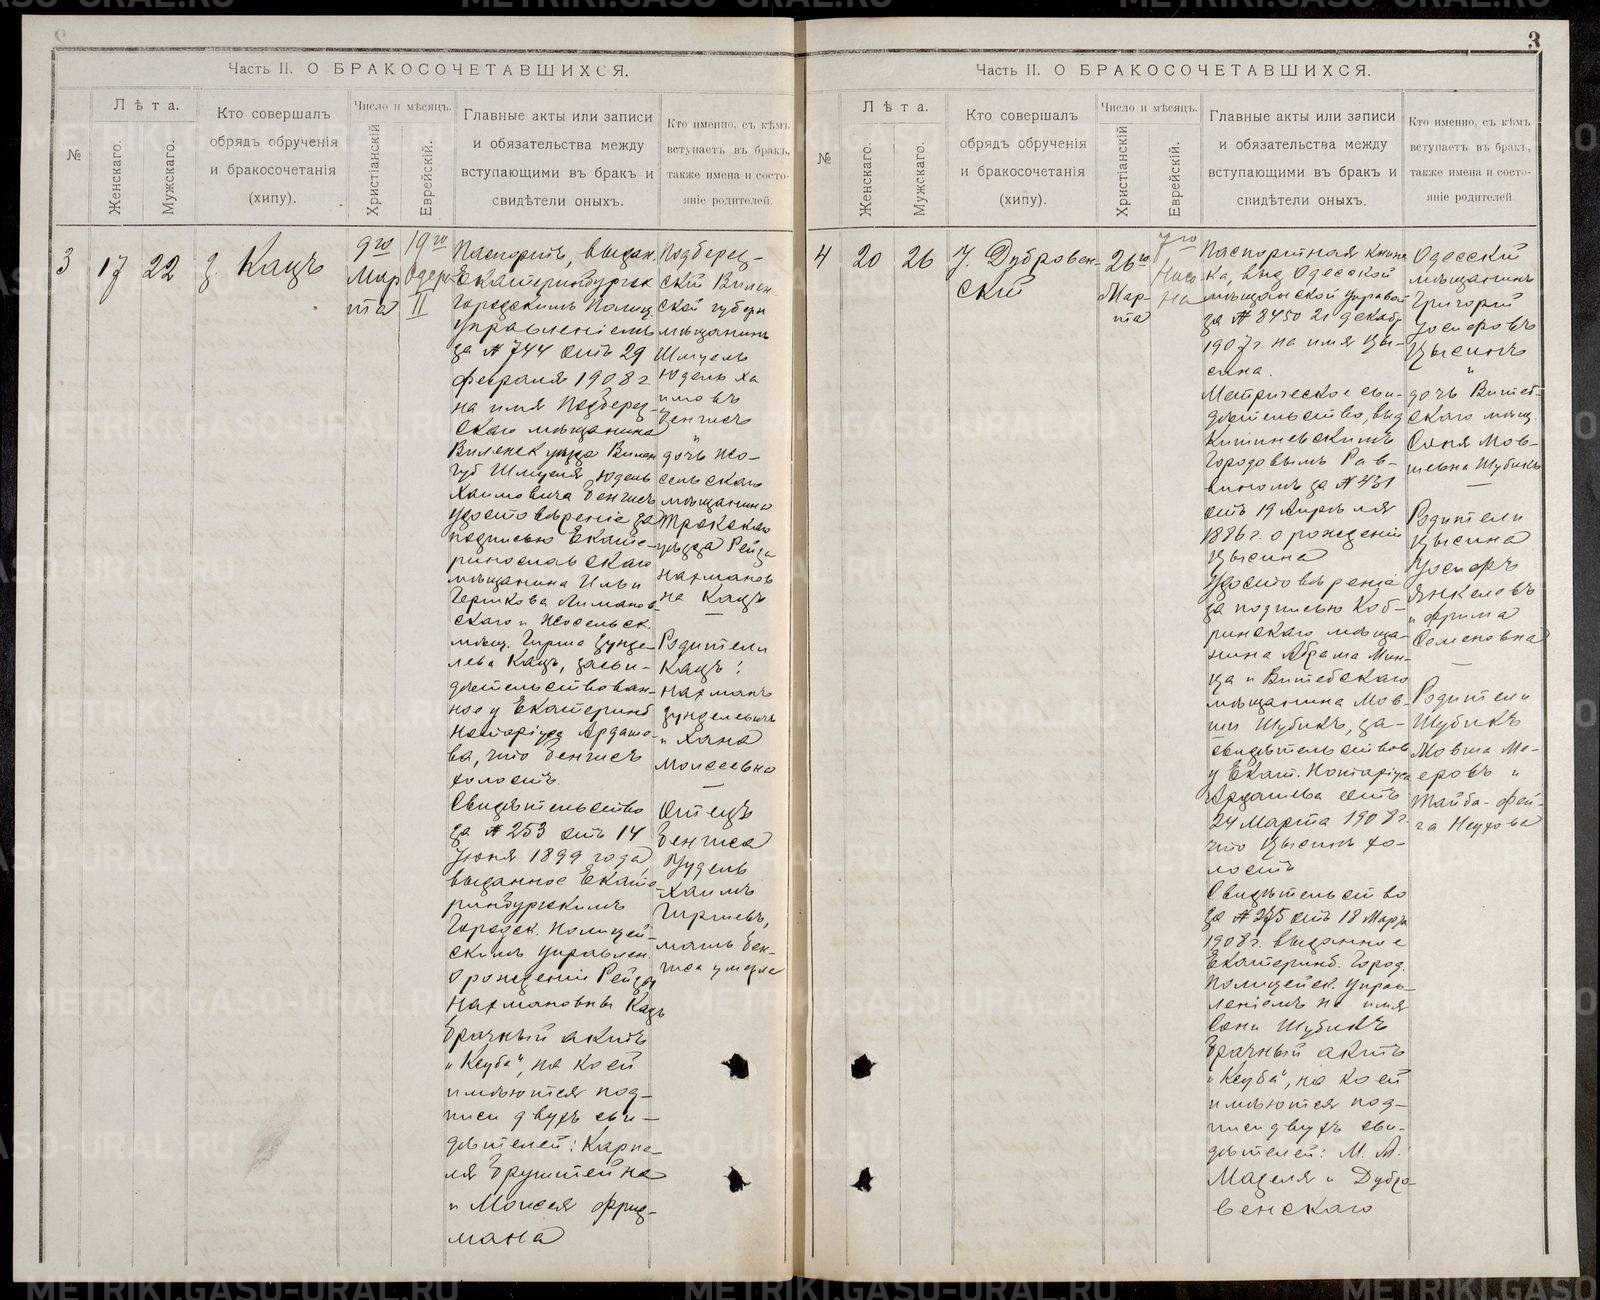 3
Часть II. О БРАКОСОЧЕТАВШИХСЯ.
№
Лѣта.
Женскаго.
Мужскаго.
Кто совершалъ
обрядъ обрученія
и бракосочетанія
(хипу).
Число и мѣсяцъ.
Христіанскій
Еврейскій.
Главные акты или записи
и обязательства между
вступающими въ бракъ и
свидѣтели оныхъ.
Кто именно, съ кѣмъ
вступаетъ въ бракъ,
также имена и состо-
яніе родителей.
3
17
22
З. Кацъ
9го
Мар
та
19го
Одеръ
II
Паспортъ, выдан.
Екатеринбургск
Городскимъ Полиц.
Управленіемъ
за № 744 отъ 29
февраля 1908 г
на имя Подберез-
скаго мѣщанина
Виленск уѣзда Вилен
губ Шмуеля Юдель
Хаимовича Бенгисъ
удостовѣреніе за
подписью Екате-
ринославскаго
мѣщанина Ильи
Гершкова Лиманов-
скаго и Жосельск.
мѣщ. Гирша Зунде-
лева Кацъ, засви-
дѣтельствован-
ное у Екатеринб
Нотаріуса Ардаше-
ва, что Бенгисъ
холостъ.
Свидѣтельство
за № 253 отъ 14
Іюня 1899 года,
выданное Екате-
ринбургскимъ
Городск. Полицей-
скимъ управлен.
о рожденіи Рейзы
Нахмановны Кацъ
Брачный актъ
„Ксуба", на коей
имѣются под-
писи двухъ сви-
дѣтелей: Карпе-
ля Бруштейна
и Моисея Фрид-
мана
Подберез-
скій Вилен
ской губерн
мѣщанинъ
Шмуель
Юдель Ха
имовъ
Бенгисъ
"
дочь Жо-
сельскаго
мѣщанина
Трокскаго
уѣзда Рейза
Нахманов
на Кацъ
—
Родители
Кацъ:
Нахманъ
Зунделевичъ
и Хана
Моисеевна
—
Отецъ
Бенгиса
Юдель
Хаимъ
Гиршевъ,
мать Бен-
гиса умерла
Часть II. О БРАКОСОЧЕТАВШИХСЯ.
№
Лѣта.
Женскаго.
Мужскаго.
Кто совершалъ
обрядъ обрученія
и бракосочетанія
(хипу).
Число и мѣсяцъ.
Христіанскій
Еврейскій.
Главные акты или записи
и обязательства между
вступающими въ бракъ и
свидѣтели оныхъ.
Кто именно, съ кѣмъ
вступаетъ въ бракъ,
также имена и состо-
яніе родителей
4
20
26
У. Дубровен-
скій
26го
Мар-
та
7го
Ниса
на
Паспортная книж
ка, выд Одесской
мѣщанской управой
за № 8450 21 декабр
1907 г. на имя Цы-
сина.
Метрическое сви-
дѣтельство, выд
Кишиневскимъ
Городовымъ Рав-
виномъ за № 431
отъ 19 Апрѣля
1886 г. о рожденіи
Цысина
Удостовѣреніе
за подписью Коб-
ринскаго мѣща-
нина Абрама Мин-
ца и Витебскаго
мѣщанина Мов-
ши Шубикъ, за-
свидѣтельствов
у Екат. Нотаріуса
Ардашева отъ
24 Марта 1908 г.
что Цысинъ хо-
лостъ
Свидѣтельство
за № 275 отъ 18 Марта
1908 г. выданное
Екатеринб. Город.
Полицейск. Управ-
леніемъ на имя
Сони Шубикъ
Брачный актъ
„Ксуба", на коей
имѣются под-
писи двухъ сви-
дѣтелей: М. А.
Мазеля и Дубро-
венскаго
Одесскій
мѣщанинъ
Григорій
Іосифовъ
Цысинъ
"
дочь Витеб-
скаго мѣщ.
Соня Мов-
шевна Шубикъ
—
Родители
Цысина
Іосифъ
Янкелевъ
и Фрима
Семеновна
—
Родители
Шубикъ
Мовша Ме-
еровъ и
Тайба-Фей-
га Неухова